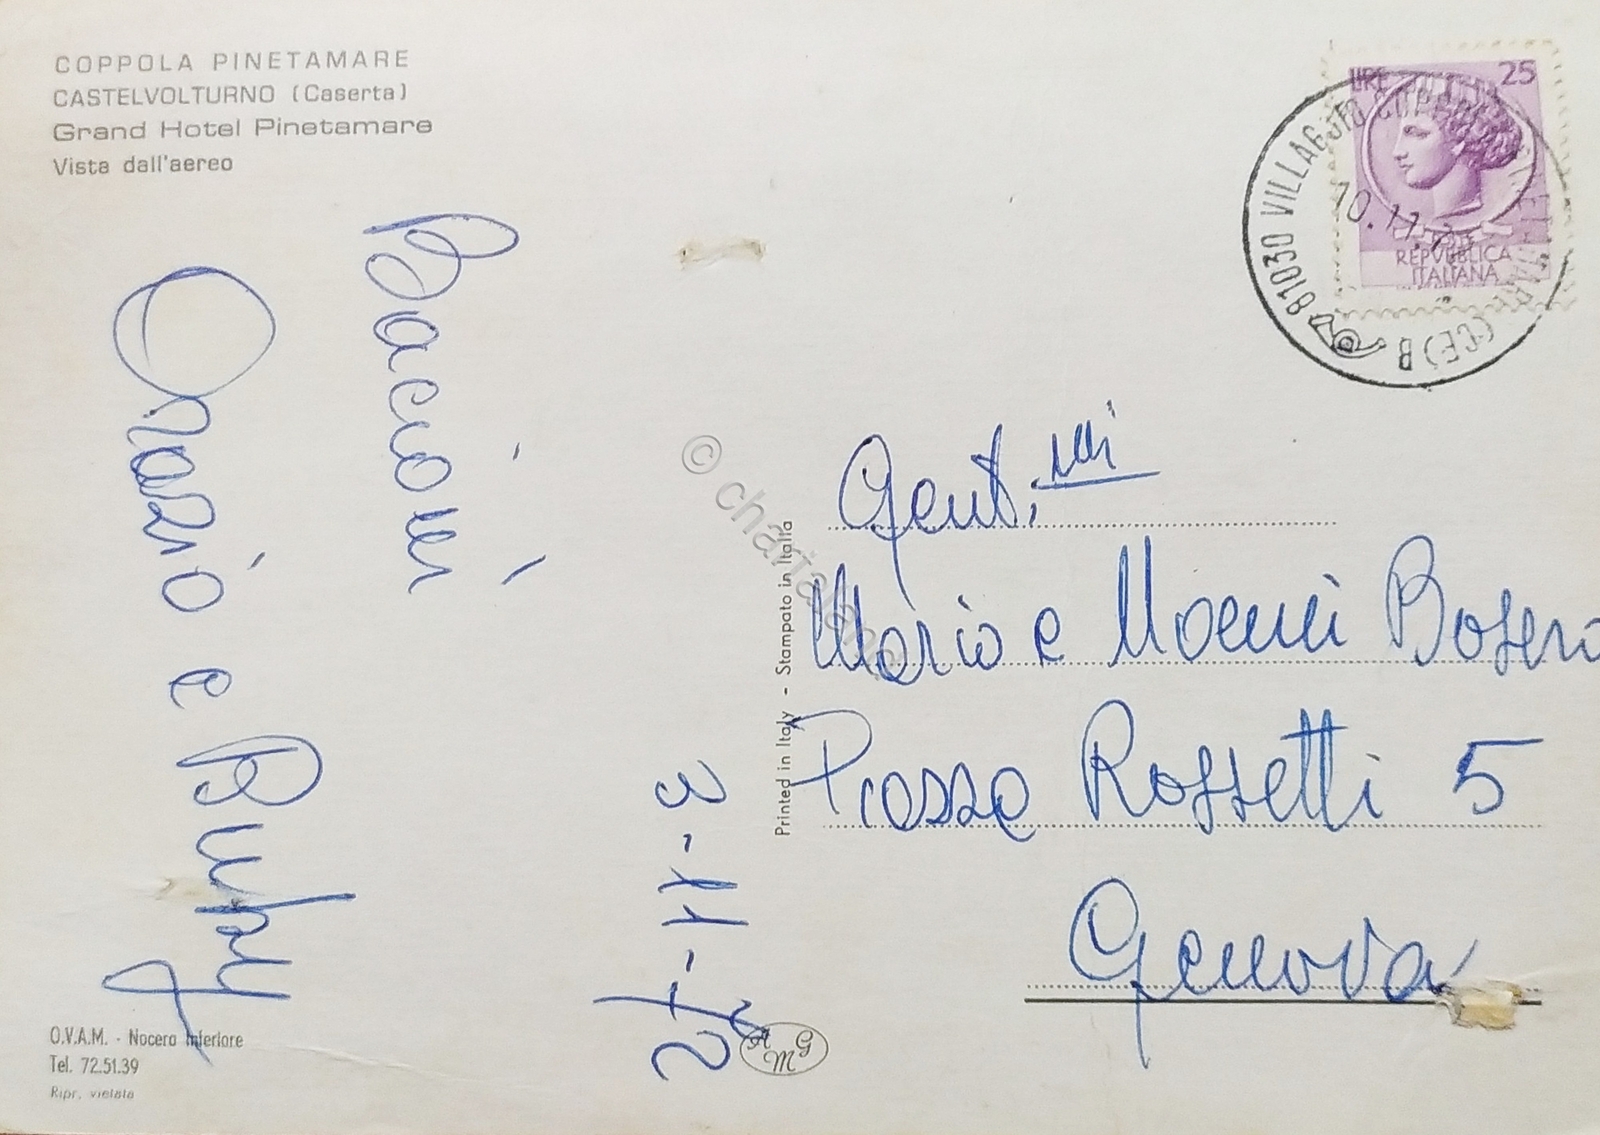 COPPOLA PINETAMARE
CASTELVOLTURNO (Caserta)
Grand Hotel Pinetamare
Vista dall'aereo
Bacioni
Orazio e
3-11-72
O.V.A.M. - Nocera Inferiore
Tel. 72.51.39
Ripr. vietata
Printed in Italy - Stampato in Italia
AMG
© charta
LIRE 25
REPVBBLICA
ITALIANA
81030 VILLAGGIO COPPOLA PINETAMARE (CE) B
10.11.7
Gent.mi
Mario e Noemi
Piazza Rossetti 5
Genova